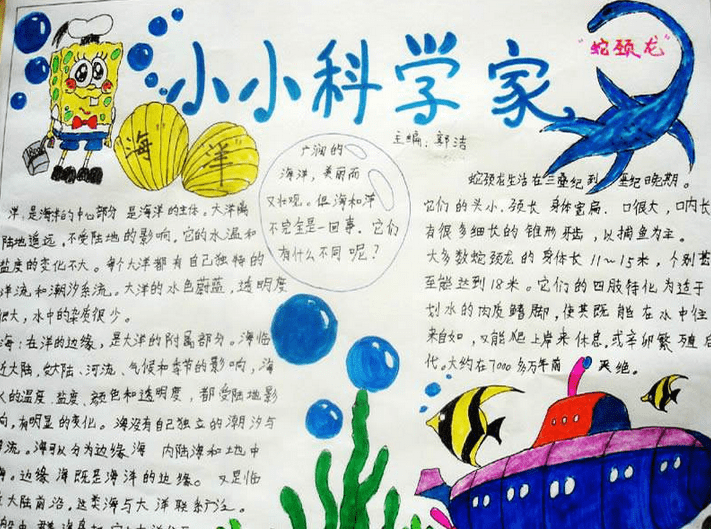 小小科学家
"蛇颈龙"
主编：郭洁
"海"
"洋"
广阔的
海洋，美丽而
又壮观。但海和洋
不完全是一回事，它们
有什么不同呢？
洋：是海洋的中心部分 是海洋的主体。大洋离
陆地遥远，不受陆地的影响，它的水温和
盐度的变化不大。每个大洋都有自己独特的
洋流和潮汐系流。大洋的水色蔚蓝，透明度
很大，水中的杂质很少。
海：在洋的边缘，是大洋的附属部分。海临
近大陆，受大陆、河流、气候和季节的影响，海
水的温度、盐度、颜色和透明度，都受陆地影
响，有明显的变化。海没有自己独立的潮汐与
海流。海可以分为边缘海 内陆海和地中
海。边缘海既是海洋的边缘。又是临
近大陆前沿，这类海与大洋联系广泛。
蛇颈龙生活在三叠纪到 垩纪晚期。
它们的头小、颈长 身体宽扁、口很大，口内长
有很多细长的锥形牙齿，以捕鱼为主。
大多数蛇颈龙的身体长11～15米，个别甚
至能达到18米。它们的四肢特化为适于
划水的肉质鳍脚，使其既能在水中往
来自如，又能爬上岸来休息或
繁殖后
代。大约在7000多万年前 灭绝。